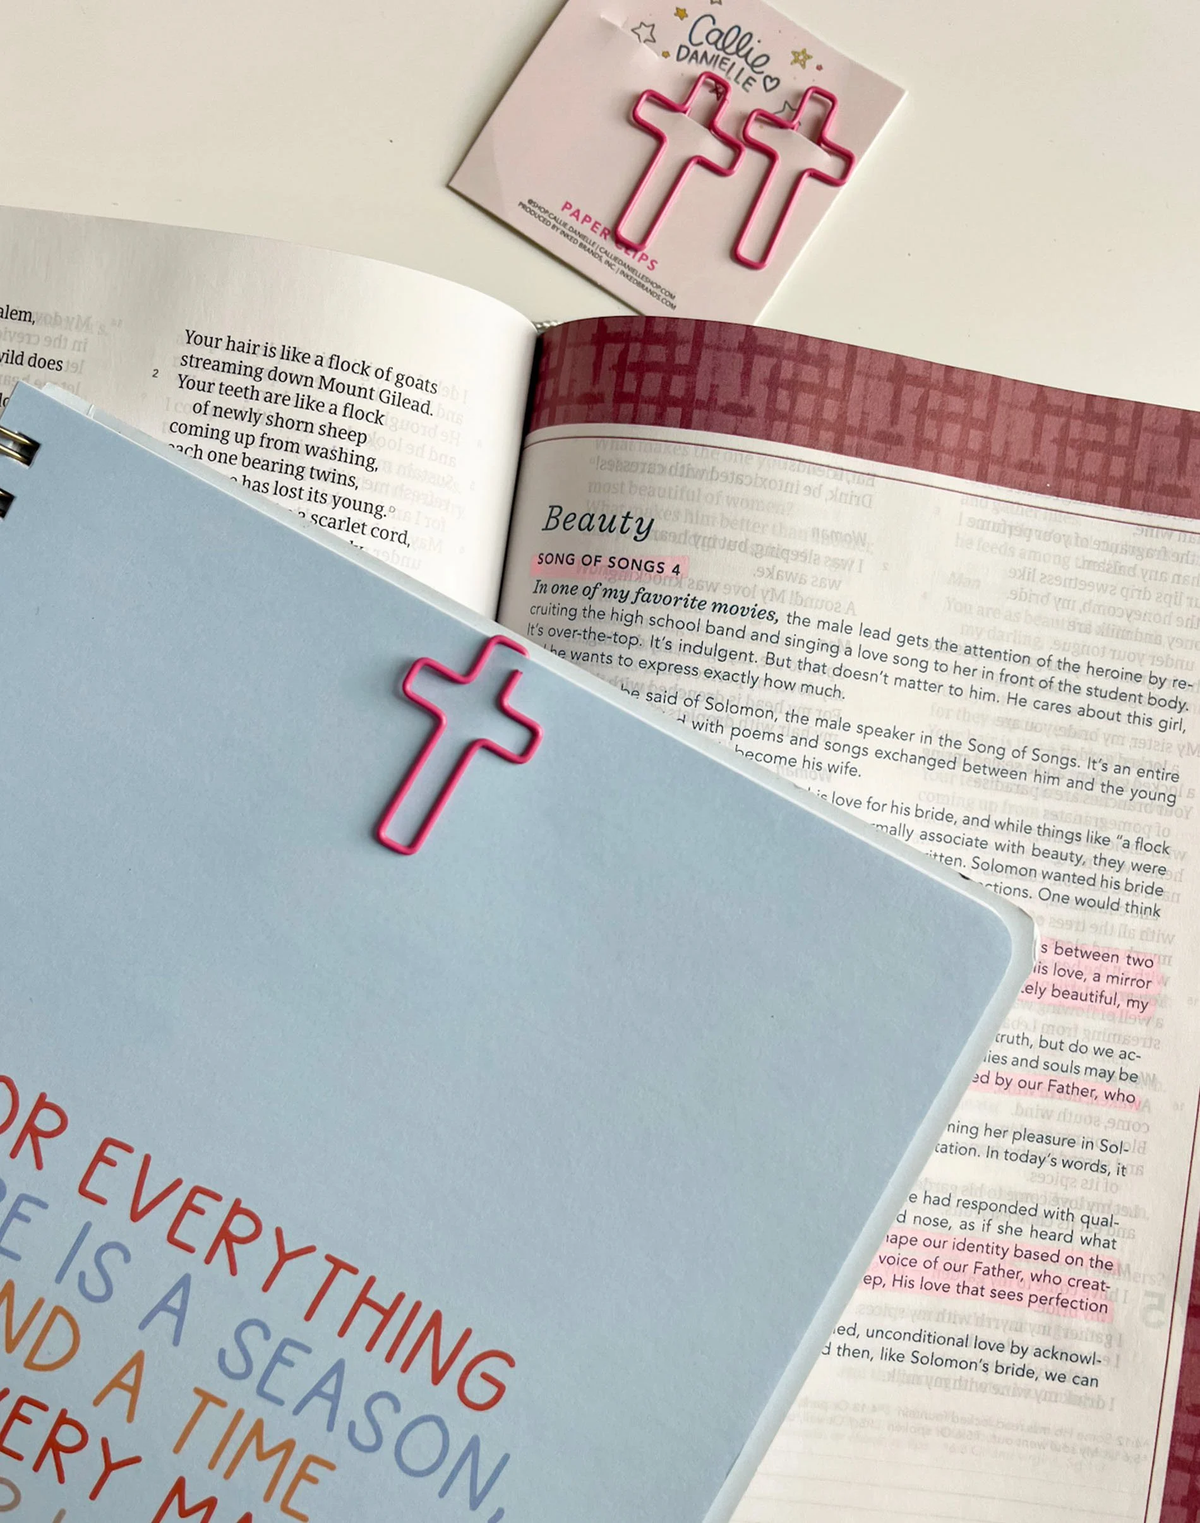 Callie
DANIELLE
PAPER CLIPS
@SHOP.CALLIE.DANIELLE | CALLIEDANIELLESHOP.COM
PRODUCED BY INKED BRANDS, INC. | INKEDBRANDS.COM
alem,
wild does
Your hair is like a flock of goats
streaming down Mount Gilead.
2 Your teeth are like a flock
of newly shorn sheep
coming up from washing,
each one bearing twins,
has lost its young.
scarlet cord,
Beauty
SONG OF SONGS 4
In one of my favorite movies, the male lead gets the attention of the heroine by re-
cruiting the high school band and singing a love song to her in front of the student body.
It's over-the-top. It's indulgent. But that doesn't matter to him. He cares about this girl,
he wants to express exactly how much.
be said of Solomon, the male speaker in the Song of Songs. It's an entire
with poems and songs exchanged between him and the young
become his wife.
his love for his bride, and while things like "a flock
rmally associate with beauty, they were
itten. Solomon wanted his bride
ctions. One would think
s between two
is love, a mirror
ely beautiful, my
truth, but do we ac-
ies and souls may be
ed by our Father, who
ning her pleasure in Sol-
tation. In today's words, it
e had responded with qual-
d nose, as if she heard what
hape our identity based on the
voice of our Father, who creat-
ep, His love that sees perfection
ied, unconditional love by acknowl-
d then, like Solomon's bride, we can
OR EVERYTHING
RE IS A SEASON,
ND A TIME
VERY MA